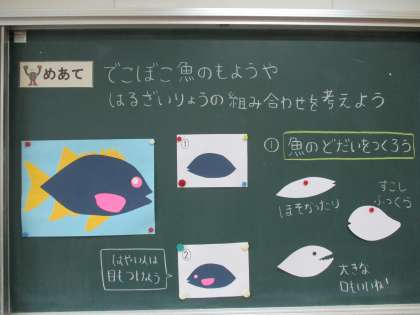 めあて
でこぼこ魚のもようや
はるざいりょうの組み合わせを考えよう
①
① 魚のどだいをつくろう
ほそながかったり
すこし
ふっくら
②
はやい人は
目もつけよう
大きな
口もいいね!